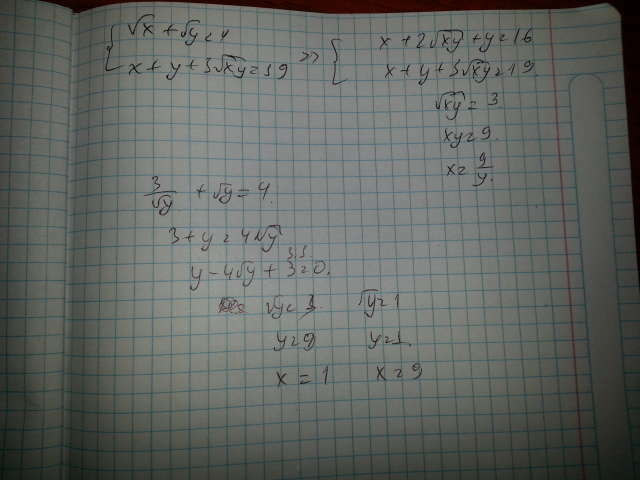 { √x + √y = 4
x + y + 3√xy = 19 >> { x + 2√xy + y = 16
x + y + 3√xy = 19
√xy = 3
xy = 9.
x = 9/y.
3/√y + √y = 4.
3 + y = 4√y
y - 4√y + 3 = 0.
√y = 3. √y = 1
y = 9 y = 1.
x = 1 x = 9